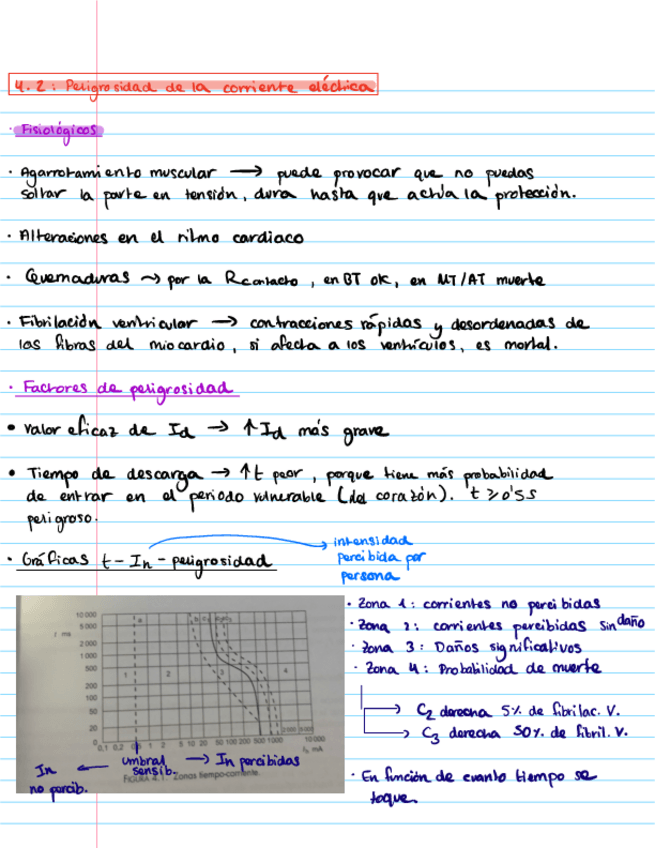 4.2: Peligrosidad de la corriente eléctrica
· Fisiológicos
· Agarrotamiento muscular → puede provocar que no puedas
soltar la parte en tensión, dura hasta que actúa la protección.
· Alteraciones en el ritmo cardiaco
· Quemaduras → por la Rcontacto, en BT ok, en MT/AT muerte
· Fibrilación ventricular → contracciones rápidas y desordenadas de
las fibras del miocardio, si afecta a los ventrículos, es mortal.
· Factores de peligrosidad
• Valor eficaz de Id → ↑Id más grave
• Tiempo de descarga → ↑t peor, porque tiene más probabilidad
de entrar en el periodo vulnerable (del corazón). t ≥ 0'5s
peligroso.
· Gráficas t - In - peligrosidad
intensidad
percibida por
persona
· Zona 1: corrientes no percibidas
· Zona 2: corrientes percibidas sin daño
· Zona 3: Daños significativos
· Zona 4: Probabilidad de muerte
→ C2 derecha 5% de fibrilac. V.
→ C3 derecha 50% de fibril. V.
· En función de cuanto tiempo se
toque.
10 000
5 000
t ms
2 000
1 000
500
200
100
50
20
0
a b
1 2 3 4
0,1 0,2 1 2 5 10 20 50 100 200 500 1000 2000 10 000
mA
In ← umbral → In percibidas
no percib. sensib.
FIGURA 4.1. Zonas tiempo-corriente.